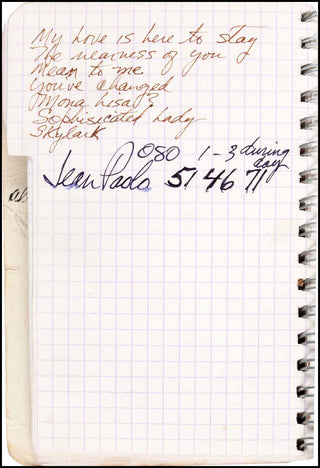 My Love is here to stay
The nearness of you
Mean to me
You've changed
Mona Lisa
Sophisicated Lady
Skylark
080 1-3 during day
Jean Paolo 51 46 71